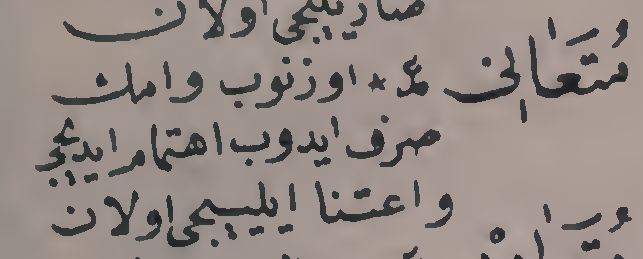 صاريليجى اولان
مُتَعَانِى ع * اوزنوب وامك
صرف ايدوب اهتمام ايديجى
واعتنا ايلييجى اولان